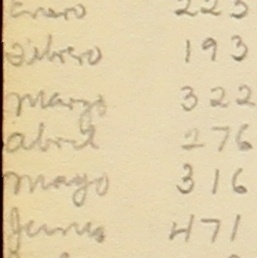 Enero 223
Febrero 193
Marzo 322
abril 276
mayo 316
Junio 471